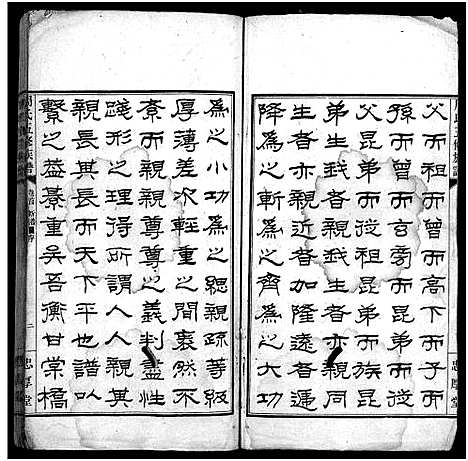 父而祖而曾而高下而子而
孫而曾而玄旁而昆弟而從
父昆弟而從祖昆弟而族昆
弟生我者親我生者亦親同
生者亦親近者加隆遠者遞
降為之斬為之齊為之大功
為之小功為之緦親疏等級
厚薄差次輕重之間袤然不
紊而親親尊尊之義判盡性
踐形之理得謂人人親其
親長其長而天下平也譜以
繫之益綦重矣吾衡甘棠橋
周氏五修族譜
卷首
二
忠厚堂
忠厚堂